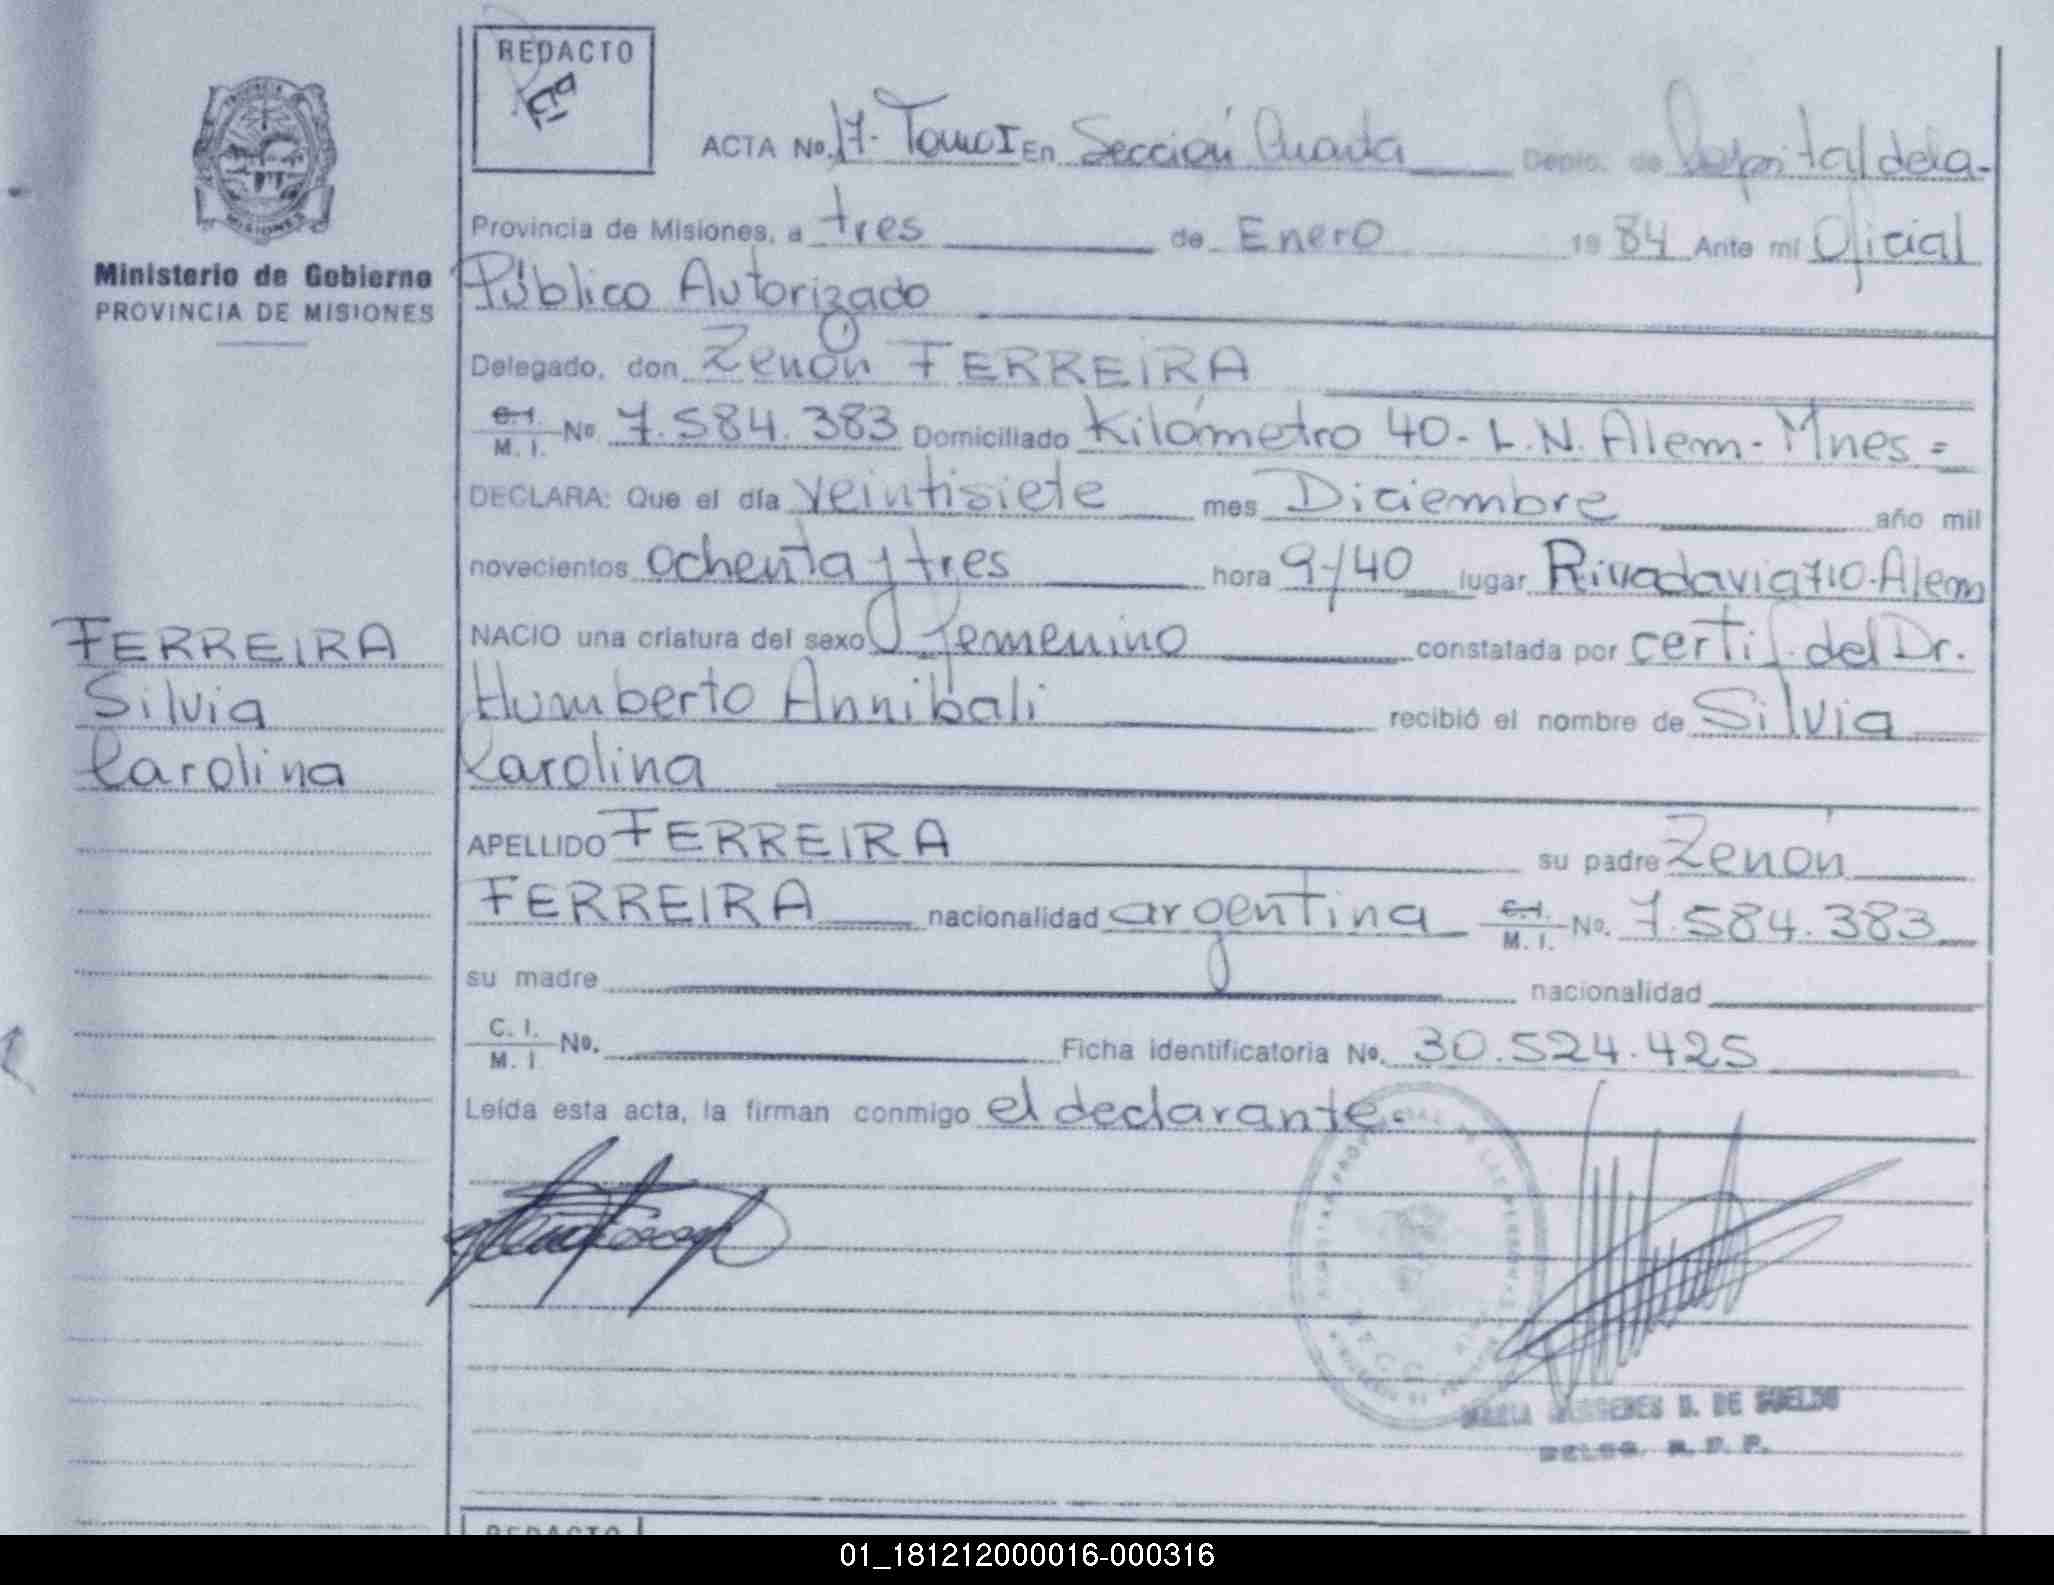 REDACTO
ACTA No. 17- Tomo I En Sección Cuarta Depto. de Capital de la-
Provincia de Misiones, a tres de Enero 1984 Ante mí Oficial
Público Autorizado
Delegado, don Zenón FERREIRA
C.I. M. I. No 7.584.383 Domiciliado Kilómetro 40- L.N. Alem- Mnes =
DECLARA: Que el día veintisiete mes Diciembre año mil
novecientos ochenta y tres hora 9-/40 lugar Rivadavia 710-Alem
NACIO una criatura del sexo femenino constatada por certif. del Dr.
Humberto Annibali recibió el nombre de Silvia
Carolina
APELLIDO FERREIRA su padre Zenón
FERREIRA nacionalidad argentina C.I. M. I. No. 7.584.383
su madre nacionalidad
C. I. M. I. No. Ficha identificatoria No. 30.524.425
Leída esta acta, la firman conmigo el declarante.
MISIONES
Ministerio de Gobierno
PROVINCIA DE MISIONES
FERREIRA
Silvia
Carolina
MARIA D. DE SUELDO
DELEG. R. P. P.
REDACTO
01_181212000016-000316